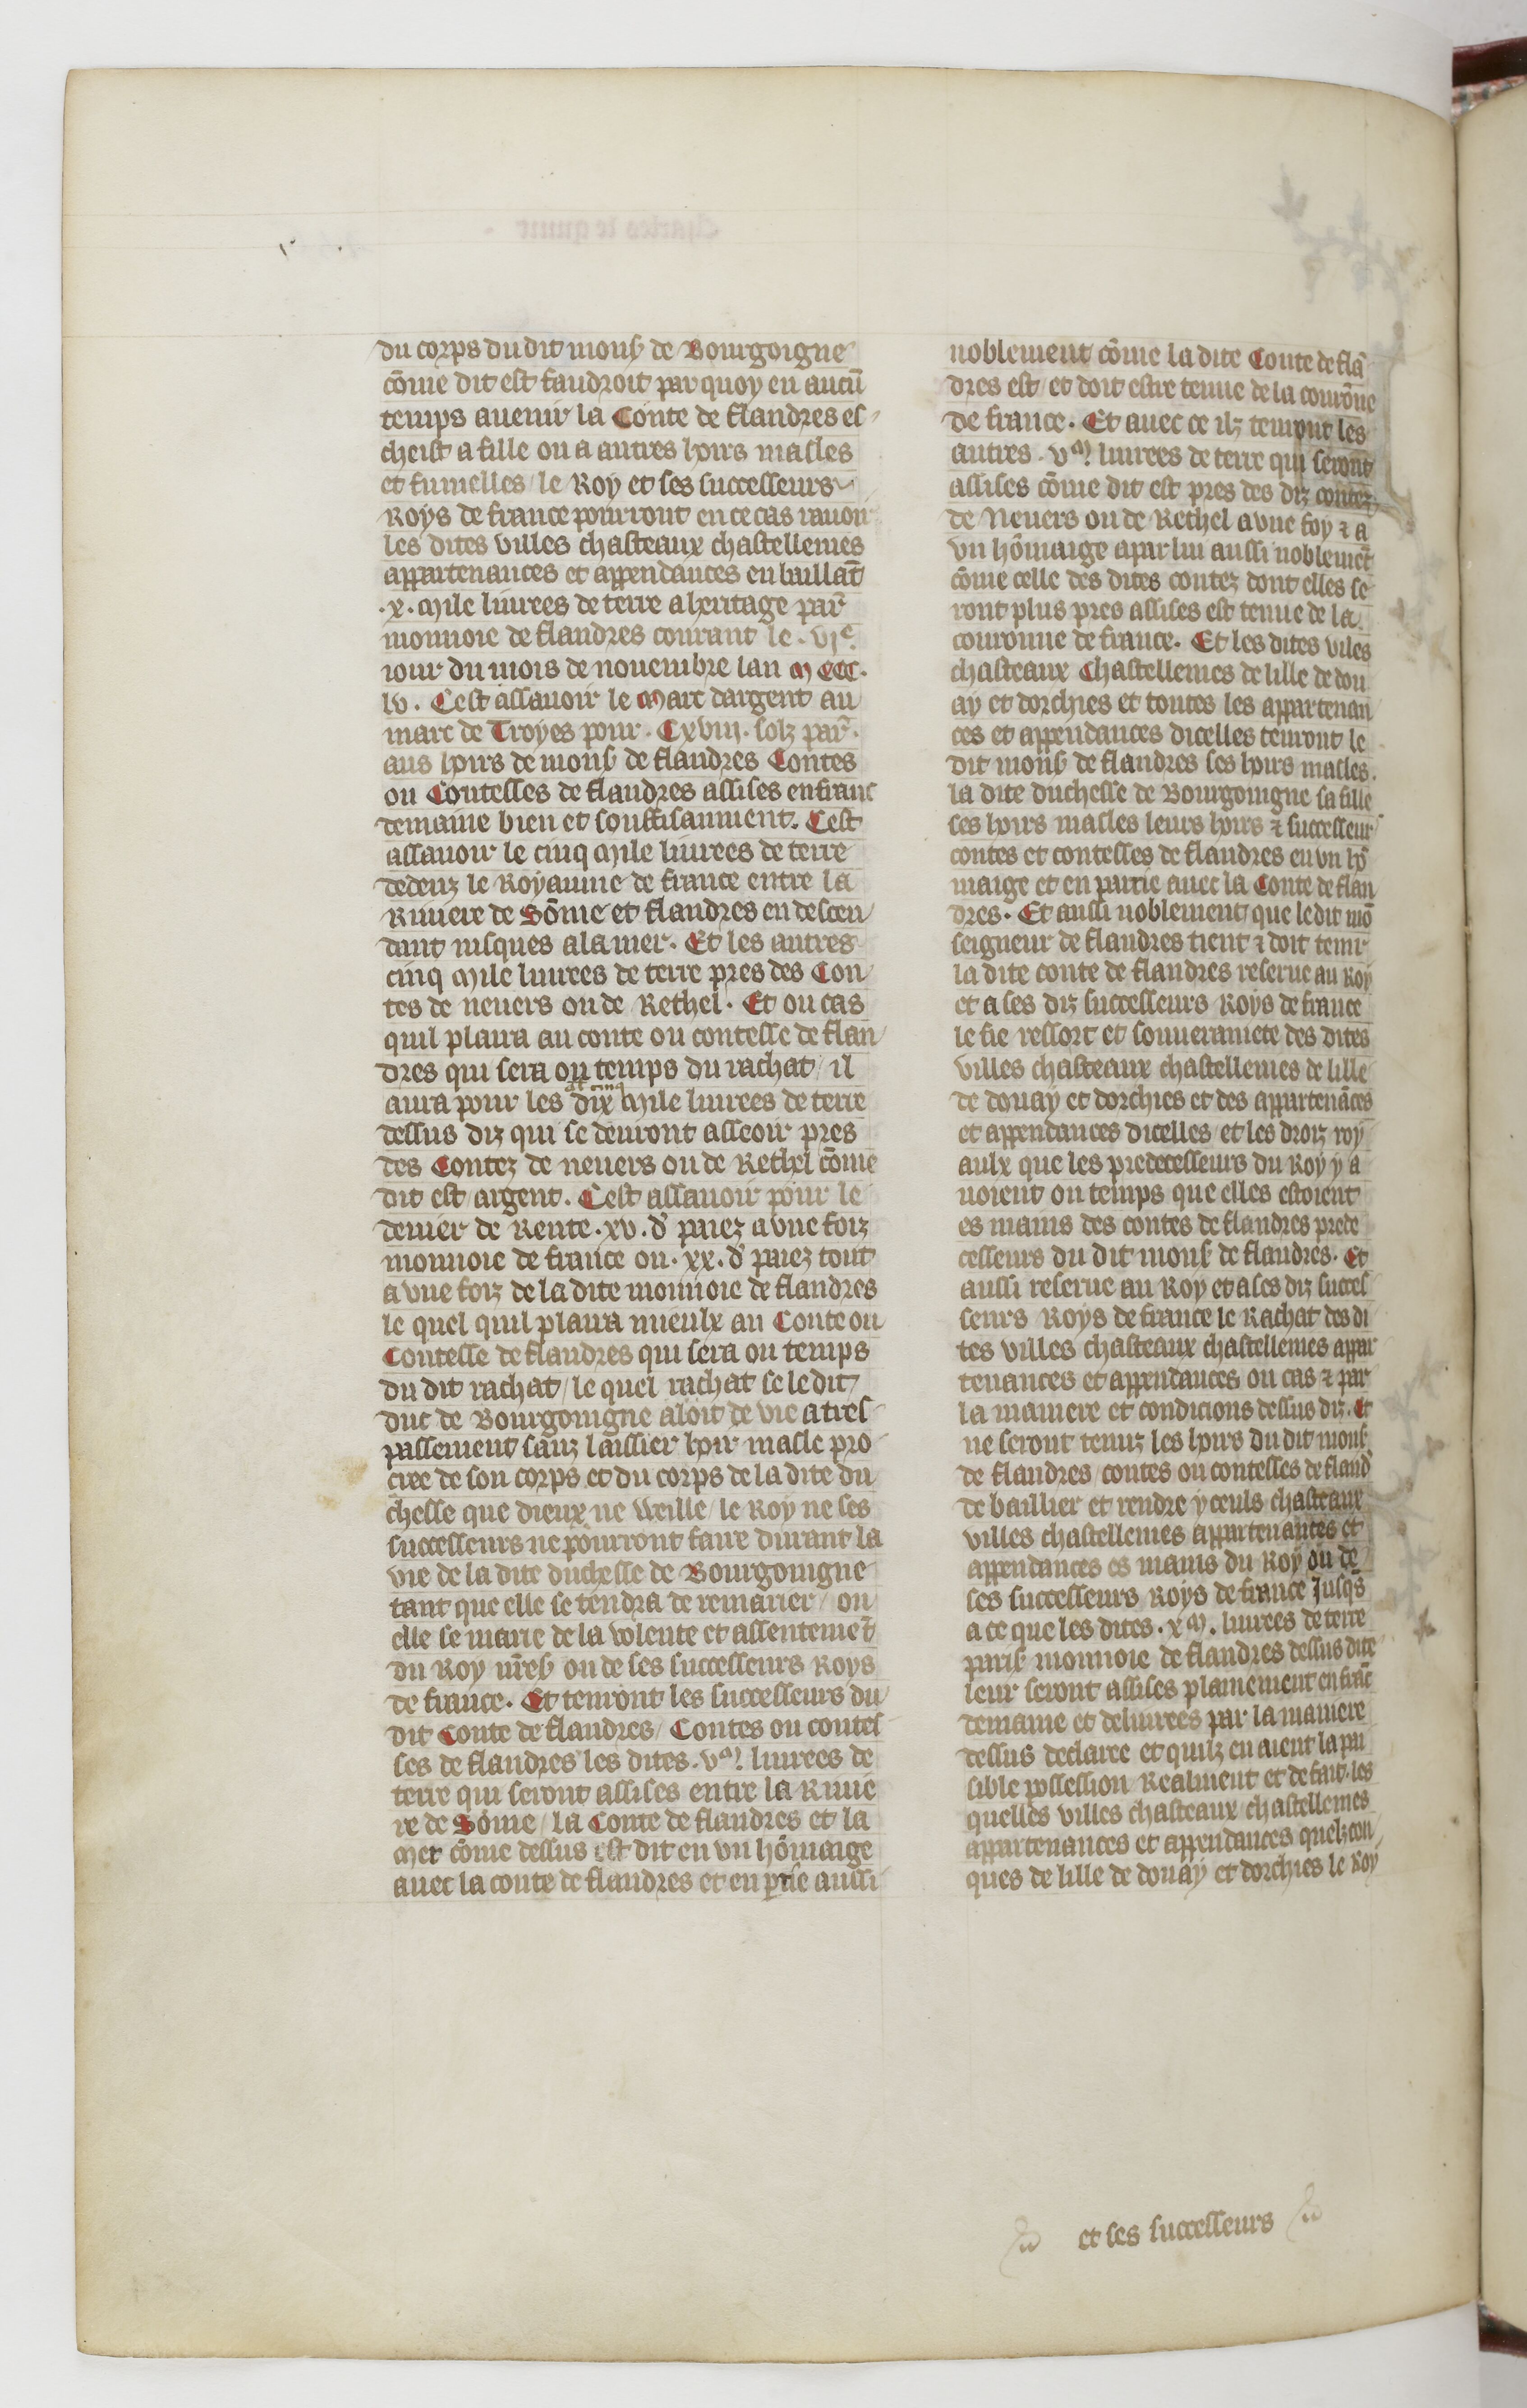 du corps du dit mons de Bourgoigne
cõme dit est faudroit par quoy en aucũ
temps auenir la Conte de flandres es
cheist a fille ou a autres hoirs masles
et fumelles / le Roy et ses successeurs
Roys de france pourront en ce cas rauoir
les dites villes chasteaux chastellenies
appartenances et appendances en baillãt
.x. Mile liurees de terre a heritage par̃
monnoie de flandres courant le .vjᵉ.
iour du mois de nouembre lan M CCC.
lv. Cest assauoir le Marc dargent au
marc de Troyes pour . Cxviij . solz par̃.
aus hoirs de mons de flandres Contes
ou Contesses de flandres assises en franc
demaine bien et souffisaument. Cest
assauoir le cinq Mile liurees de terre
dedenz le Royaume de france entre la
Riuiere de Sõme et flandres en descen
dant iusques a la mer. Et les autres
cinq Mile liurees de terre pres des Con
tes de neuers ou de Rethel. Et ou cas
quil plaira au conte ou contesse de flan
dres qui sera ou temps du rachat / il
aura pour les dix Mile liurees de terre
dessus diz qui se deuront asseoir pres
des Contez de neuers ou de Rethel cõme
dit est / argent. Cest assauoir pour le
denier de Rente .xv. dˢ paiez a vne foiz
monnoie de france ou .xx. dˢ paiez tout
a vne foiz de la dite monnoie de flandres
le quel quil plaira mieulx au Conte ou
Contesse de flandres qui sera ou temps
du dit rachat / le quel rachat se le dit
duc de Bourgoingne aloit de vie a tres
passement sanz laissier hoir masle pro
cree de son corps et du corps de la dite du
chesse que dieux ne veille / le Roy ne ses
successeurs ne pourront faire durant la
vie de la dite duchesse de Bourgoingne
tant que elle se tendra de remarier / ou
elle se marie de la volente et assentemẽt
du Roy nr̃es ou de ses successeurs Roys
de france. Et tenront les successeurs du
dit Conte de flandres / Contes ou contes
ses de flandres les dites . vᴹ. liurees de
terre qui seront assises entre la Riuie
re de Sõme / la Conte de flandres et la
Mer cõme dessus est dit en vn hõmaige
auec la conte de flandres et en ptie aussi
noblement cõme la dite Conte de flã
dres est / et doit estre tenue de la courõne
de france. Et auec ce ilz tenront les
autres . vᴹ. liurees de terre qui seront
assises cõme dit est pres des diz contez
de Neuers ou de Rethel a vne foy ⁊ a
vn hõmaige a par lui aussi noblemẽt
cõme celle des dites contez dont elles se
ront plus pres assises est tenue de la
couronne de france. Et les dites viles
chasteaux Chastellenies de lille de dou
ay et dorchies et toutes les appartenan
ces et appendances dicelles tenront le
dit mons de flandres ses hoirs masles.
la dite duchesse de Bourgoingne sa fille
ses hoirs masles leurs hoirs ⁊ successeur
contes et contesses de flandres en vn hõ
maige et en partie auec la Conte de flan
dres. Et aussi noblement que le dit mõ
seigneur de flandres tient ⁊ doit tenir
la dite conte de flandres reserue au Roy
et a ses diz successeurs Roys de france
le fie ressort et souuerainete des dites
villes chasteaux chastellenies de lille
de douay et dorchies et des appartenãces
et appendances dicelles / et les droiz roy
aulx que les predecesseurs du Roy y a
uoient ou temps que elles estoient
es mains des contes de flandres prede
cesseurs du dit mons de flandres. Et
aussi reserue au Roy et a ses diz succes
seurs Roys de france le Rachat des di
tes villes chasteaux chastellenies appar
tenances et appendances ou cas ⁊ par
la maniere et condicions dessus diz. Et
ne seront tenuz les hoirs du dit mons
de flandres / contes ou contesses de fland
de baillier et rendre yceuls chasteaux
villes chastellenies appartenantes et
appendances es mains du Roy ou de
ses successeurs Roys de france Jusqs
a ce que les dites . xᴹ. liurees de terre
paris monnoie de flandres dessus dite
leur seront assises plainement en frãc
demaine et deliurees par la maniere
dessus declaree et quilz en aient la pai
sible possession Realment et de fait. les
quelles villes chasteaux chastellenies
appartenances et appendances quelzcon
ques de lille de douay et dorchies le Roy
et ses successeurs